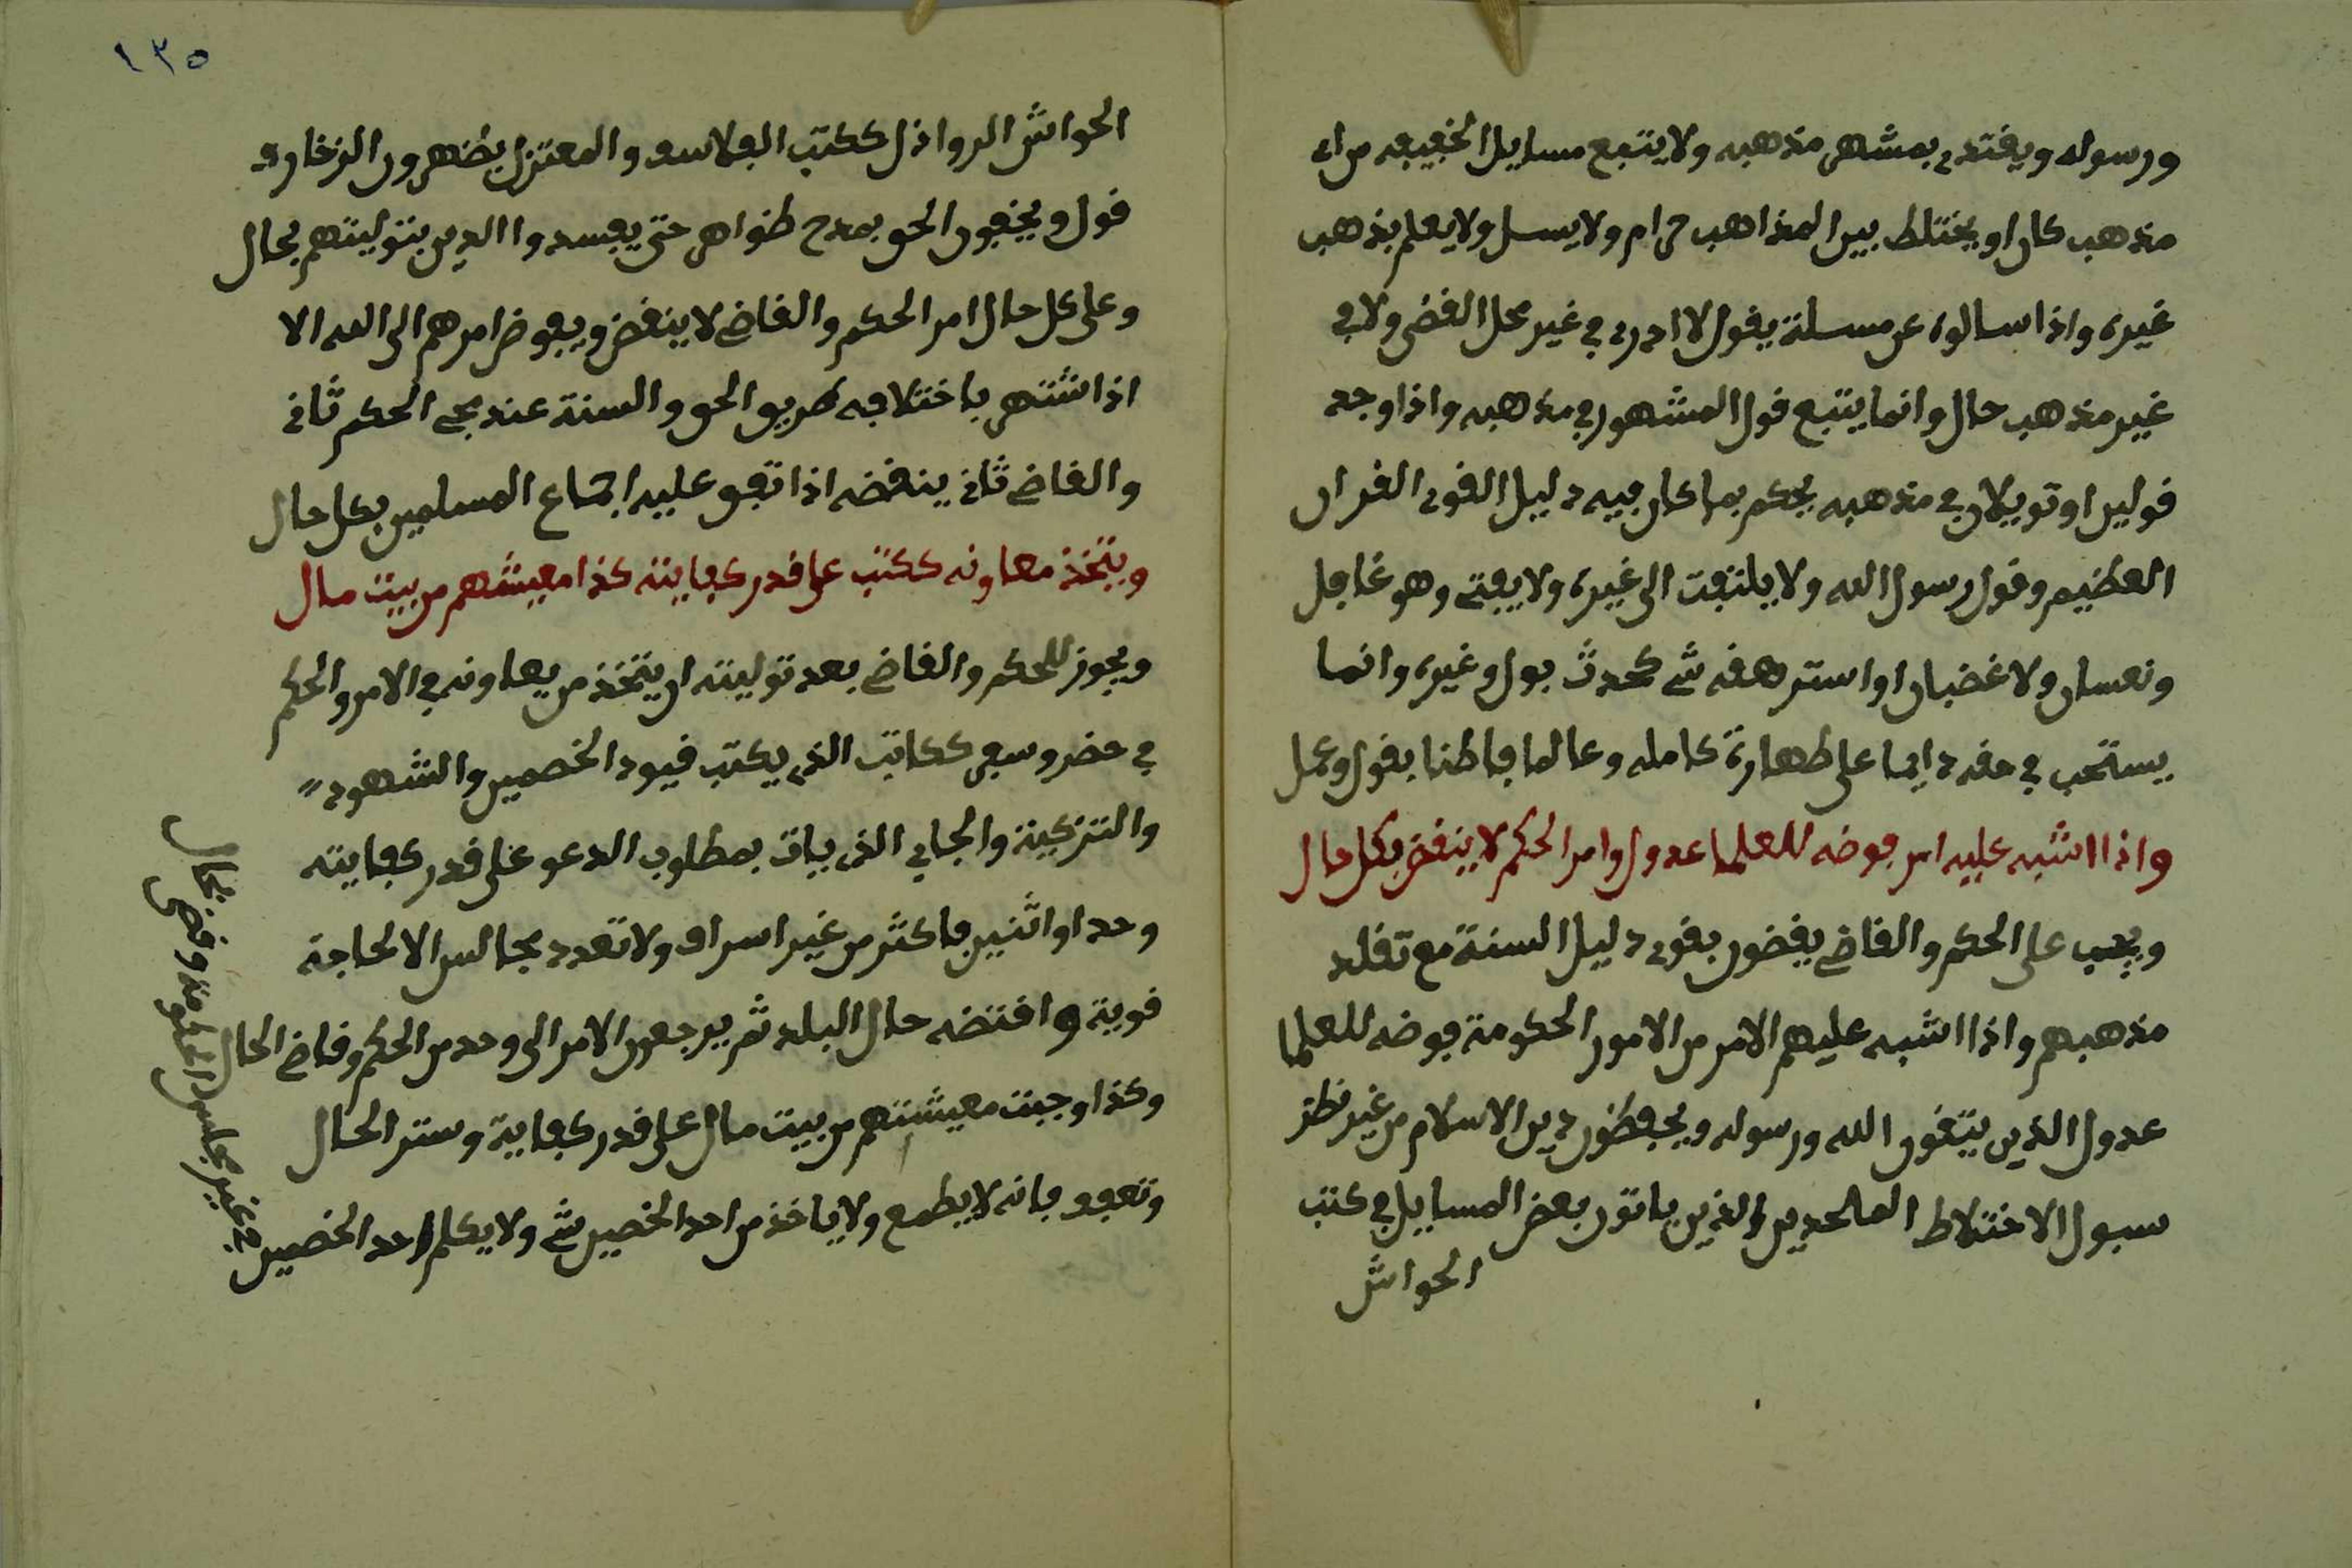 ورسوله ويقتدى بمشهر مذهبه ولا يتبع مسايل الخفيفه من اى
مذهب كان او يختلط بين المذاهب حرام ولا يسل ولا يعلم بذهب
غيره واذا سالوه عن مسلة يقول لا ادرى في غير محل القضى ولا في
غير مذهب حال وانما يتبع قول المشهور في مذهبه واذا وجد
قولين او تويلان في مذهبه يحكم بما كان فيه دليل القوى القران
العظيم وقول رسول الله ولا يلتفت الى غيره ولا يفتى وهو غافل
ونعسان ولا غضبان او استرهقه شى كحدث بول وغيره وانما
يستحب في حقه دايما على طهارة كامله وعالما فاطنا بقول وعمل
واذا اشبه عليه امر فوضه للعلما عدول وامر الحكم لا ينقض بكل حال
ويجب على الحكم والقاضى يقضون بقوى دليل السنة مع تقلد
مذهبهم واذا اشبه عليهم الامر من الامور الحكومة فوضه للعلما
عدول الذين يتقون الله ورسوله ويحفظون دين الاسلام من غير نظر
سبول الاختلاط الملحدين والذين ياتون بعض المسايل في كتب
الحواش
١٣٥
الحواش الروافل ككتب الفلاسف والمعتزل يظهرون الزخارف
قول ويخفون الحق بمدح ظواهر حتى يفسدوا الدين بتوليتهم بحال
وعلى كل حال امر الحكم والقاضى لا ينقض ويفوض امرهم الى الله الا
اذا اشتهر باختلافه طريق الحق والسنة عند مجى الحكم ثانى
والقاضى ثانى ينقضه اذا تفق عليه اجماع المسلمين بكل حال
ويتخذ معاونه ككتب على قدر كفايته كذا معيشهم من بيت مال
ويجوز للحكم والقاضى بعد توليته ان يتخذ من يعاونه في الامر والحكم
في حضر وسفر ككاتب الذى يكتب قيود الخصمين والشهود
والتزكية والجابي الذى يات بمطلوب الدعو على قدر كفايته
وحد او اثنين فاكثر من غير اسراف ولا تعدد مجالس الا لحاجة
قوية واقتضه حال البلد ثم يرجعون الامر الى وحد من الحكم وقاضى الحال
وكذا وجبت معيشتهم من بيت مال على قدر كفاية وستر الحال
وتعفف بانه لا يطمع ولا ياخذ من احد الخصين شى ولا يكلم احد الخصمين
في غير مجلس وقضى بحال